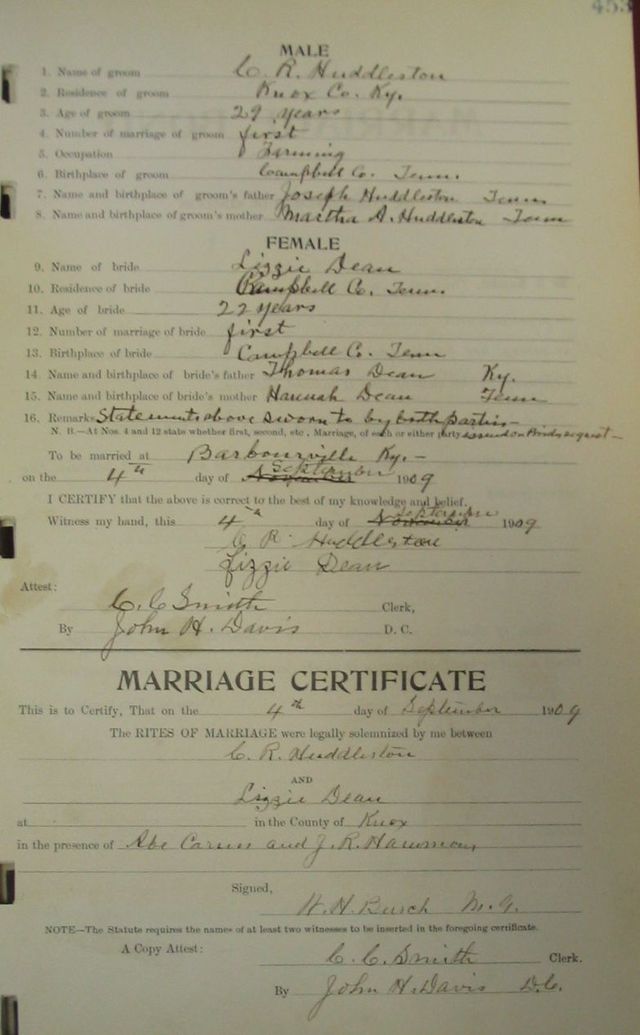 453
MALE
1. Name of groom C. R. Huddleston
2. Residence of groom Knox Co. Ky.
3. Age of groom 29 years
4. Number of marriage of groom first
5. Occupation Farming
6. Birthplace of groom Campbell Co. Tenn.
7. Name and birthplace of groom's father Joseph Huddleston Tenn
8. Name and birthplace of groom's mother Martha A. Huddleston Tenn
FEMALE
9. Name of bride Lizzie Dean
10. Residence of bride Campbell Co. Tenn.
11. Age of bride 22 years
12. Number of marriage of bride first
13. Birthplace of bride Campbell Co. Tenn
14. Name and birthplace of bride's father Thomas Dean Ky.
15. Name and birthplace of bride's mother Hannah Dean Tenn
16. Remarks Statements above sworn to by both parties
N. B.—At Nos. 4 and 12 state whether first, second, etc., Marriage, of each or either party issued on Brides request –
To be married at Barbourville Ky. –
on the 4th day of September 1909
I CERTIFY that the above is correct to the best of my knowledge and belief.
Witness my hand, this 4th day of September 1909
C. R. Huddleston
Lizzie Dean
Attest:
C. C. Smith Clerk,
By John H. Davis D. C.
MARRIAGE CERTIFICATE
This is to Certify, That on the 4th day of September 1909
The RITES OF MARRIAGE were legally solemnized by me between
C. R. Huddleston
AND
Lizzie Dean
at in the County of Knox
in the presence of Abe and J. R.
Signed,
H. H. Burch M. G.
NOTE—The Statute requires the names of at least two witnesses to be inserted in the foregoing certificate.
A Copy Attest: C. C. Smith Clerk.
By John H. Davis D.C.